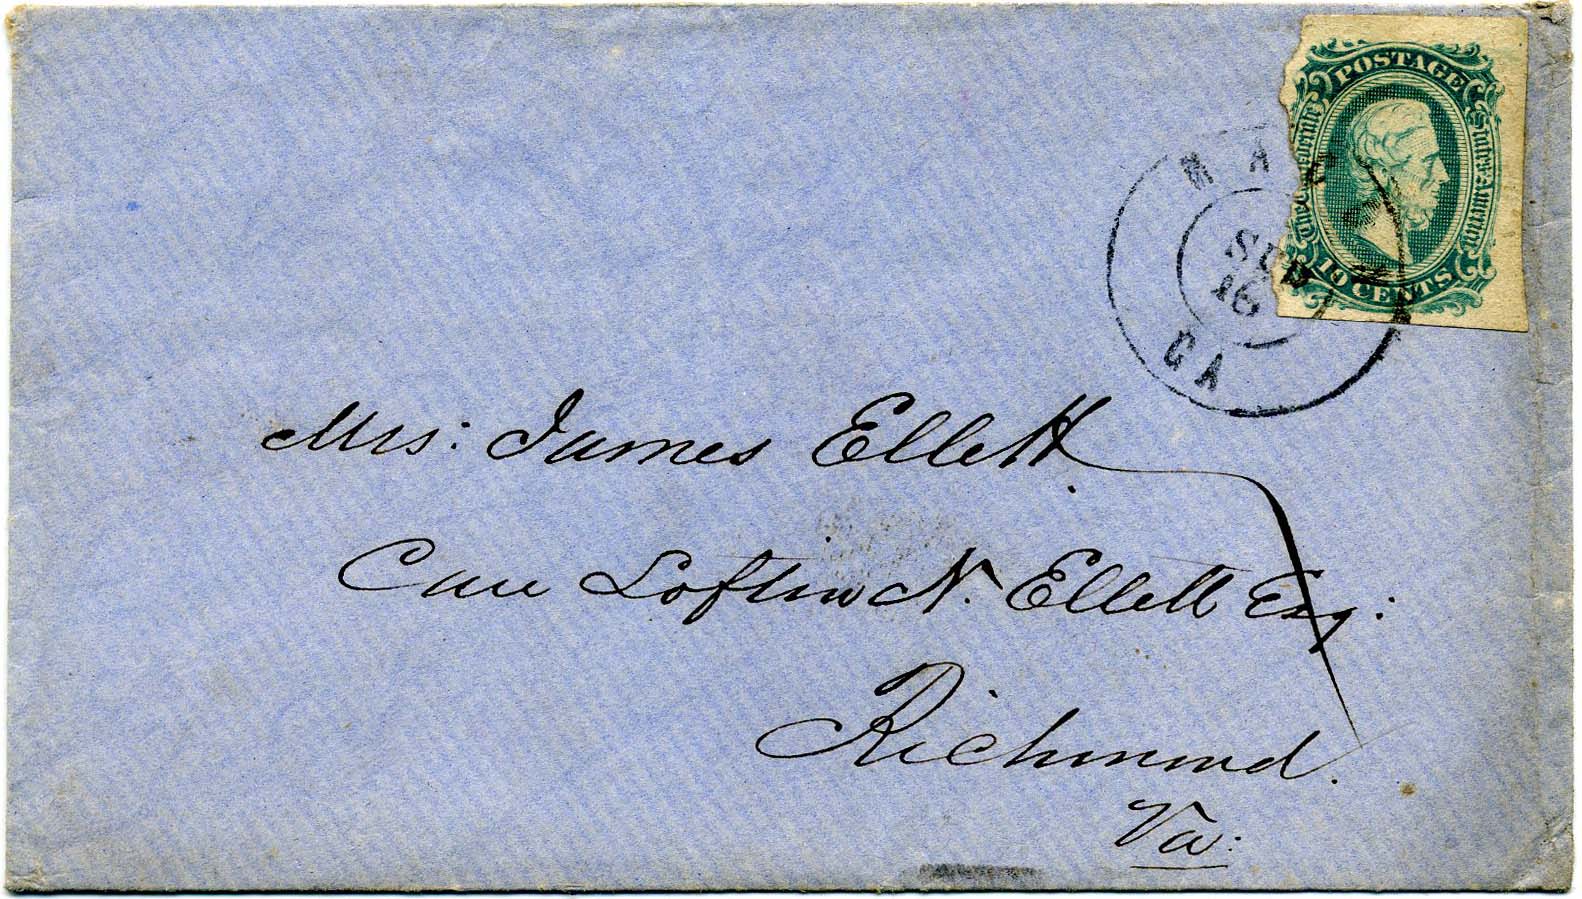 POSTAGE
The Confederate States of America
10 CENTS
MACON
SEP
16
GA
Mrs: James Ellett.
Care Loftin N. Ellett Esq:
Richmond.
Va: